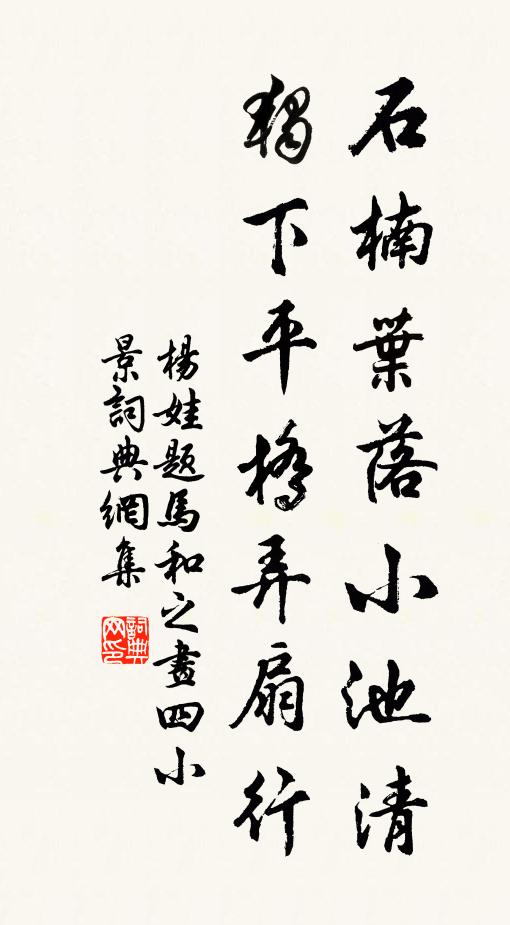 石楠葉落小池清
獨下平橋弄扇行
楊娃題馬和之畫四小
景詞典網集
詞典
网印